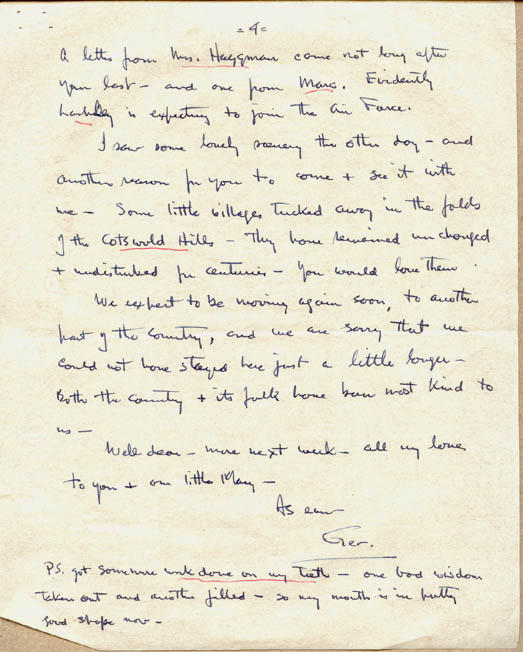 = 4 =
A letter from Mrs. Haggman came not long after
your last – and one from Marc. Evidently
is expecting to join the Air Force.
I saw some lovely scenery the other day – and
another reason for you to come + see it with
me – Some little villages tucked away in the folds
of the Cotswold Hills – They have remained unchanged
+ undisturbed for centuries – You would love them.
We expect to be moving again soon, to another
part of the country, and we are sorry that we
could not have stayed here just a little longer –
Both the country + its folk have been most kind to
us –
Well dear – more next week – all my love
to you + our little Mary –
As ever
Ger.
PS. got some more work done on my teeth – one bad wisdom
taken out and another filled – so my mouth is in pretty
good shape now –